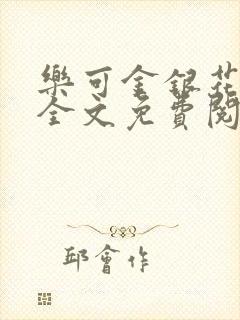 樂可金銀花
全文免費閱
邱會作